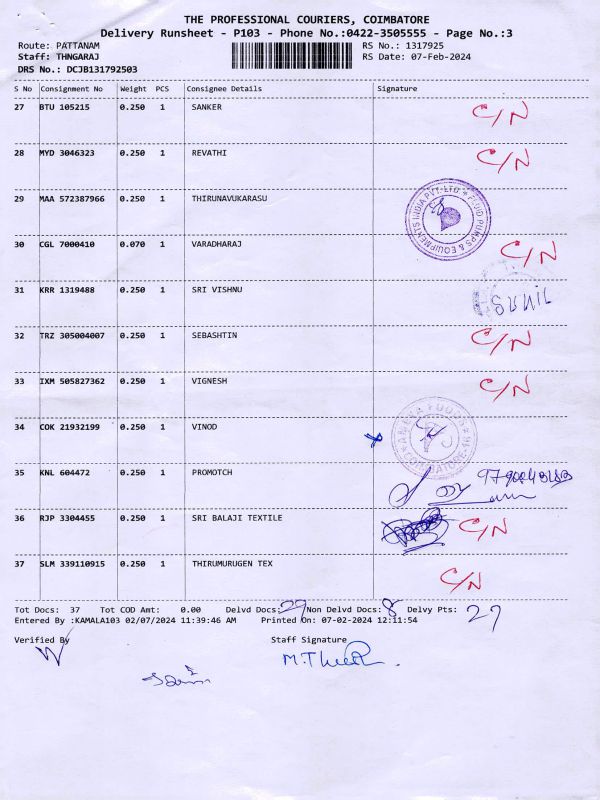 THE PROFESSIONAL COURIERS, COIMBATORE
Delivery Runsheet - P103 - Phone No.:0422-3505555 - Page No.:3
Route: PATTANAM RS No.: 1317925
Staff: THNGARAJ RS Date: 07-Feb-2024
DRS No.: DCJB131792503
S No Consignment No Weight PCS Consignee Details Signature
27 BTU 105215 0.250 1 SANKER C/N
28 MYD 3046323 0.250 1 REVATHI C/N
29 MAA 572387966 0.250 1 THIRUNAVUKARASU
FLUID PUMPS & EQUIPMENTS INDIA PVT. LTD
30 CGL 7000410 0.070 1 VARADHARAJ C/N
31 KRR 1319488 0.250 1 SRI VISHNU
32 TRZ 305004007 0.250 1 SEBASHTIN C/N
33 IXM 505827362 0.250 1 VIGNESH C/N
34 COK 21932199 0.250 1 VINOD
FOODS COIMBATORE
35 KNL 604472 0.250 1 PROMOTCH
36 RJP 3304455 0.250 1 SRI BALAJI TEXTILE C/N
37 SLM 339110915 0.250 1 THIRUMURUGEN TEX C/N
Tot Docs: 37 Tot COD Amt: 0.00 Delvd Docs: 29 Non Delvd Docs: 8 Delvy Pts: 27
Entered By :KAMALA103 02/07/2024 11:39:46 AM Printed On: 07-02-2024 12:11:54
Verified By Staff Signature